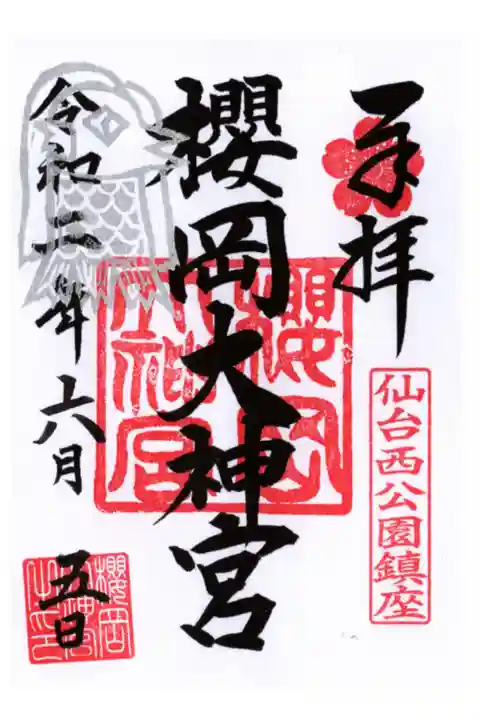 奉拝
仙台西公園鎮座
櫻岡大神宮
櫻岡大神宮
令和三年六月
五日